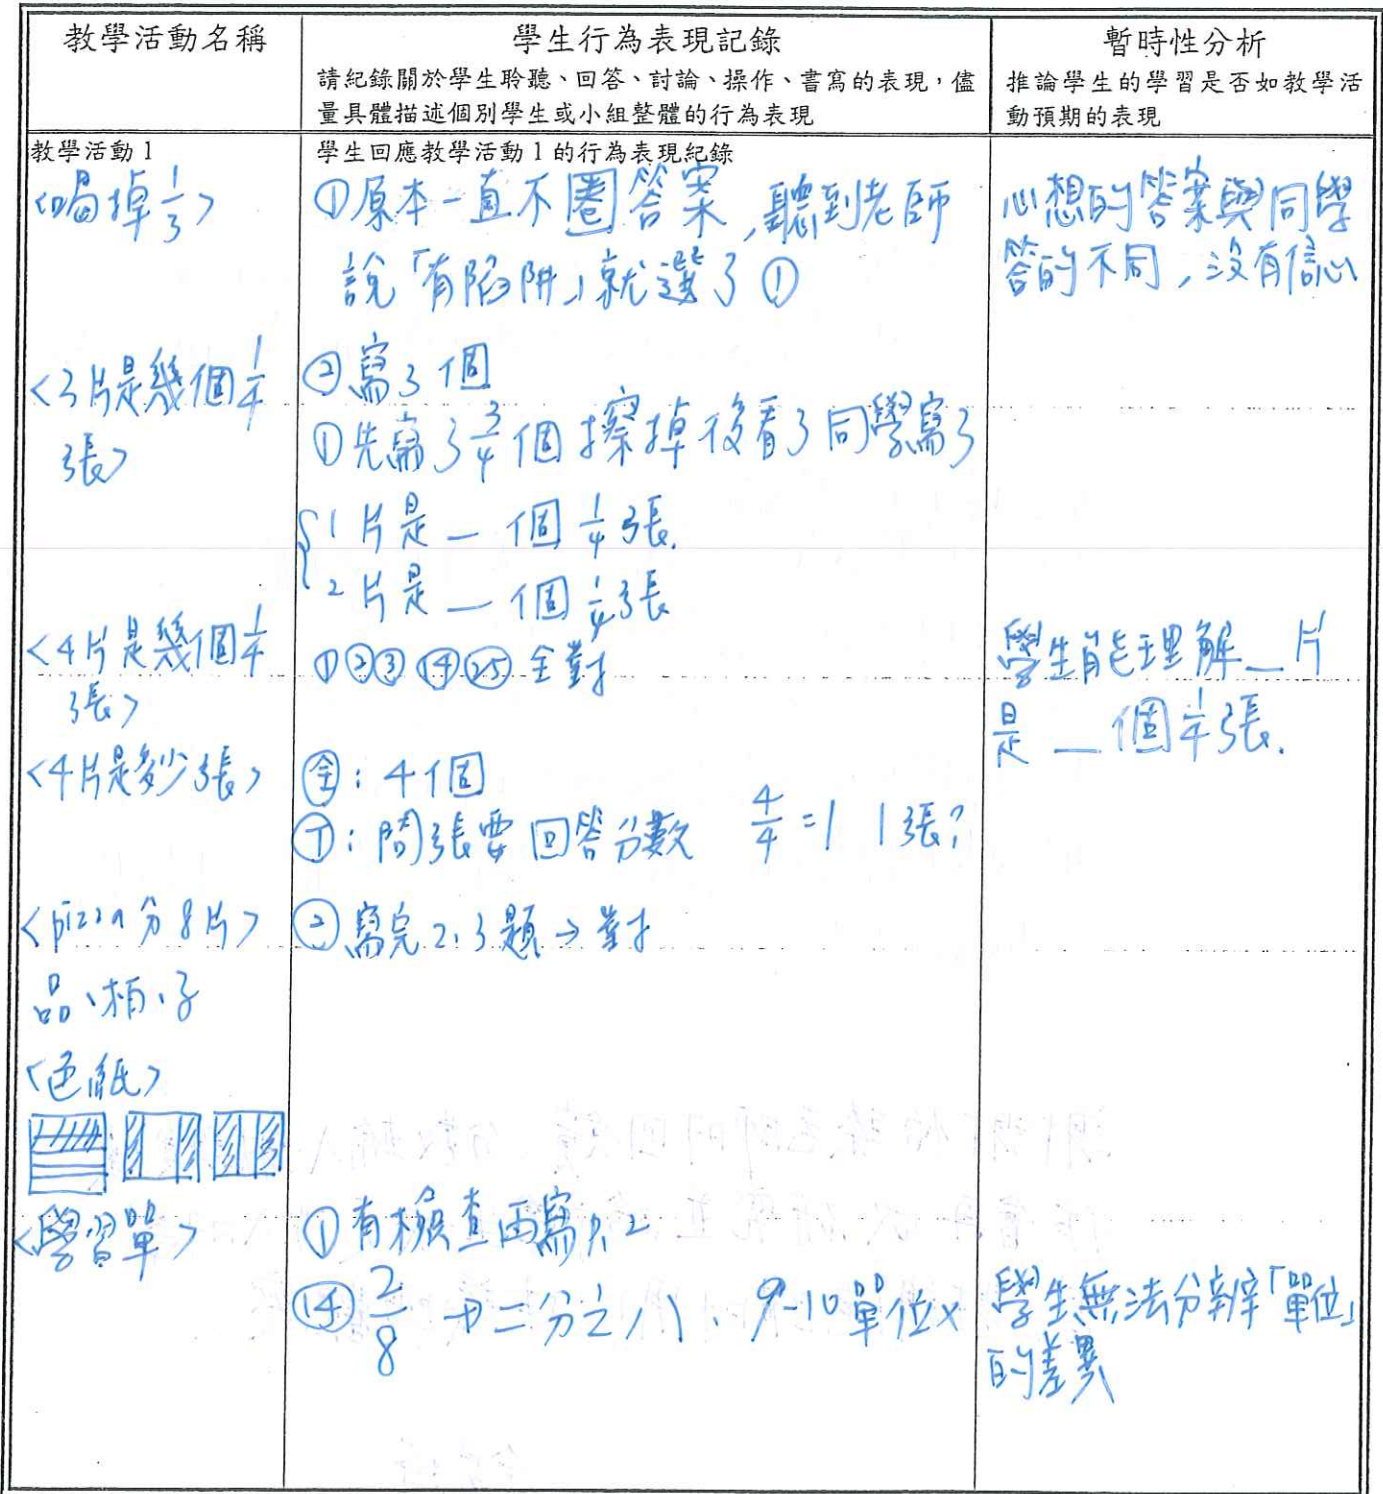 教學活動名稱
學生行為表現記錄
請紀錄關於學生聆聽、回答、討論、操作、書寫的表現,儘
量具體描述個別學生或小組整體的行為表現
暫時性分析
推論學生的學習是否如教學活
動預期的表現
教學活動1
<喝掉1/3>
學生回應教學活動1的行為表現紀錄
①原本一直不圈答案,聽到老師
說「有陷阱」就選了①
心想的答案與同學
答的不同,沒有信心
<3片是幾個1/4
張>
②寫3個
①先寫了3/4個擦掉後看了同學寫3
1片是_個1/4張.
2片是_個1/4張
<4片是幾個1/4
張>
①②③⑭㉕全對
學生能理解_片
是_個1/4張.
<4片是多少張>
全:4個
T:問張要回答分數 4/4=1 1張?
<pizza分8片>
②寫完2、3題→對
品、柏、子
<色紙>
<學習單>
①有檢查再寫P.2
⑭2/8→二分之八、9-10單位×
學生無法分辨「單位」
的差異